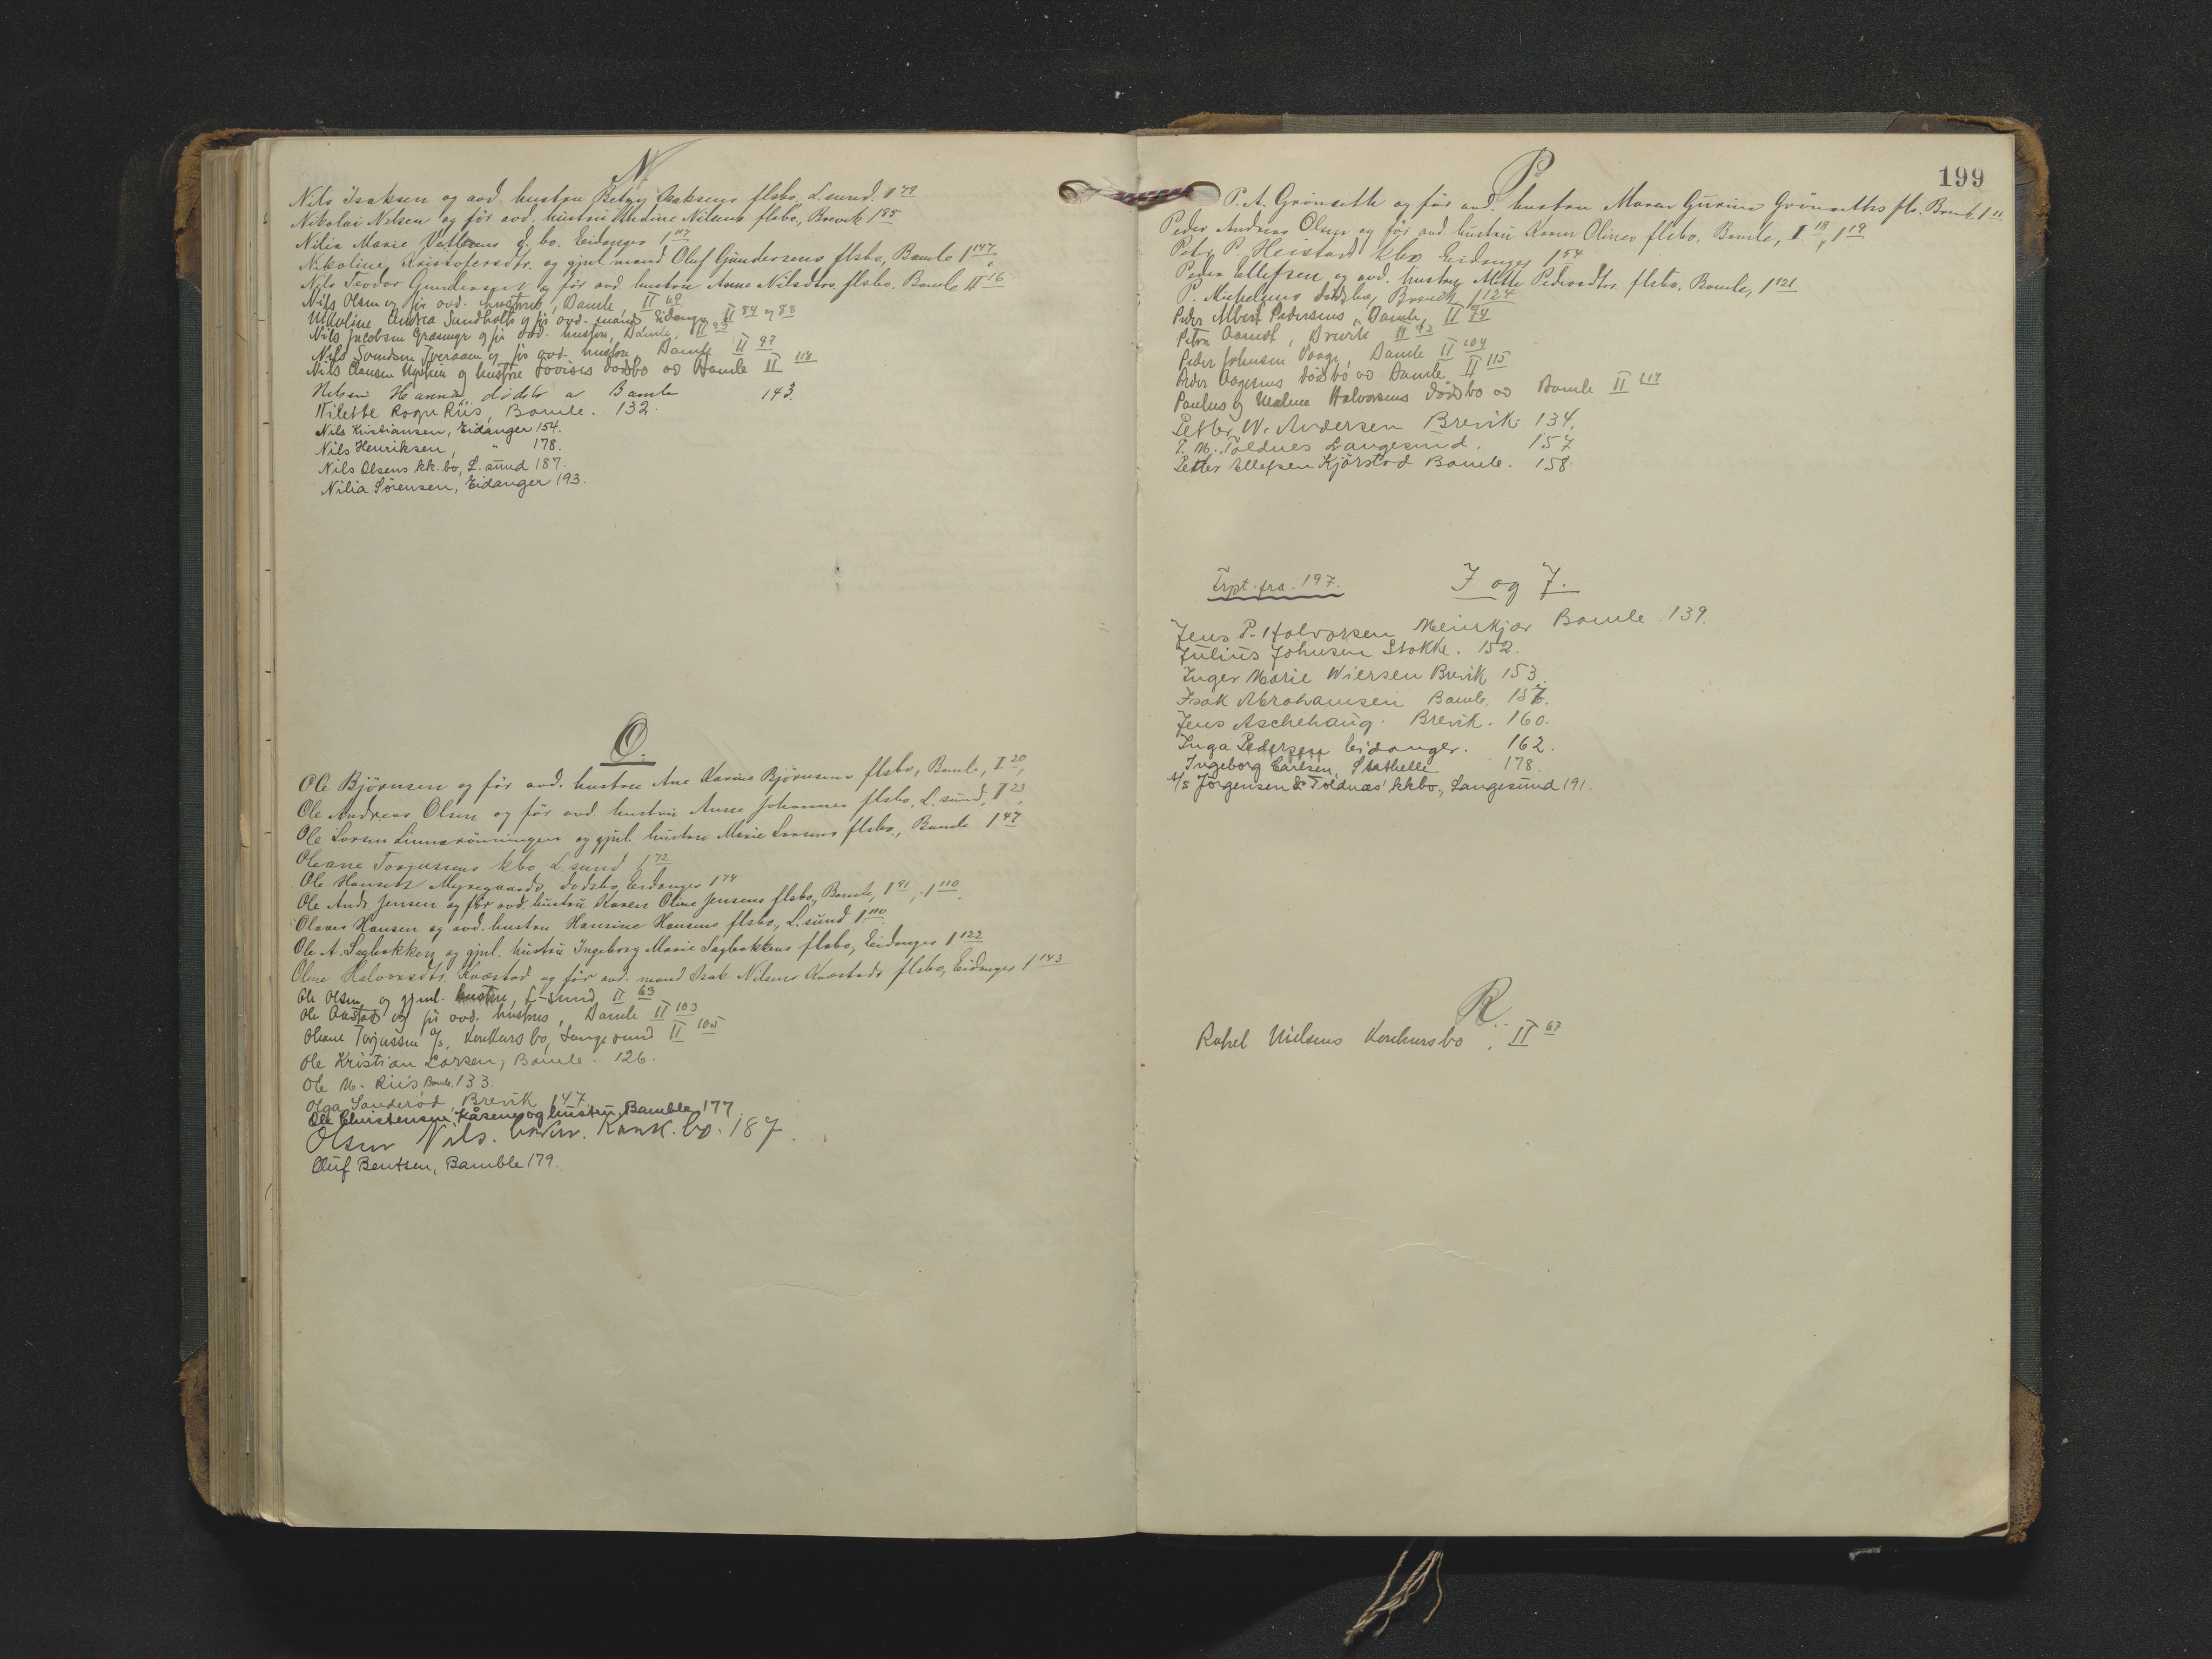 N.
Nils Isaksen og avd. hustru Betzy Isaksens flsbo, L.sund. I 79
Nikolai Nelsen og før avd. hustru Undine Nilsens flsbo, Brevik I 85
Nilia Marie Vatlens d. bo. Eidanger I 117
Nikoline Kristofersdtr. og gjnl. mand Oluf Gundersens flsbo, Bamle I 147
Nils Teodor Gundersen og før avd. hustru Anne Nilsdtrs. flsbo. Bamle II 16
Nils Olsen og før avd. hustrus, Bamle, II 69
Nikoline Andrea Sundholts og før avd. mands Eidanger II 84 og 88
Nils Jacobsen Grasmyr og før avd. hustru, Bamle, II 93
Nils Svendsen Tveraaen og før avd. hustru Bamle II 97
Nils Clausen og hustru Lovises dødsbo av Bamle II 118
Nelsen Hanna dødsbo a Bamle 143.
Nilette Rogn Riis, Bamle. 132.
Nils Kristiansen, Eidanger 154.
Nils Henriksen, " 178.
Nils Olsens kk. bo, L. sund 187.
Nilia Sørensen, Eidanger 193.
O.
Ole Bjørnsen og før avd. hustru Ane Karine Bjørnsens flsbo, Bamle, I 20,
Ole Andreas Olsen og før avd. hustru Anne Johannes flsbo, L. sund, I 23,
Ole Larsen Linnerønningen og gjnl. hustru Marie Larsens flsbo., Bamle I 47
Oleane Torjussens kbo L.sund I 72
Ole Hansen Myregaards dødsbo, Eidanger I 74
Ole Andr. Jensen og før avd. hustru Karen Oline Jensens flsbo, Bamle, I 91, I 110.
Olaves Hansen og avd. hustru Hansine Hansens flsbo, L.sund I 110.
Ole A. Sagbakken og gjnl. hustru Ingeborg Marie Sagbakkens flsbo, Eidanger I 122
Oline Halvorsdtr. Kvestad og før avd. mand Isak Nilsens Kvestads flsbo, Eidanger I 143
Ole Olsen og gjnl. hustru, L-sund II 63
Ole og før avd. hustrus, Bamle II 103
Oleane Torjussen A/s, Konkursbo, Langesund II 105
Ole Kristian Larsen, Bamle. 126.
Ole N. Riis Bamle. 133.
Olga Sanderød, Brevik 147.
Ole Christensen Kåsene og hustru, Bamble 177
Olsen Nils. Konk. bo. 187.
Oluf Bentsen, Bamble 179.
199
P.
P. A. Grønseth og før avd. hustru Maren Gurine Grønseths fls. Brevik I 11
Peder Andreas Olsen og før avd. hustru Karen Olines flsbo. Bamle, I 18, I 19
Petr. P. Heistad kbo Eidanger I 54
Peder Ellefsen og avd. hustru Mette Pedersdtrs. flsbo. Bamle, I 121
P. Michelsens dødsbo, Brevik I 124
Peder Albert Pedersens, Bamle, II
Petra Aamot, Brevik II 93
Peder Johnsen Vaage, Bamle II 104
Peder Aagesens dødsbo av Bamle II 115
Paulus og Malene Halvorsens dødsbo av Bamle II 117
Petter W. Andersen Brevik. 134.
P. M. Toldnes Langesund. 157
Petter Ellefsen Kjørstad Bamle. 158.
Trpt. fra. 197.
I og J.
Jens P. Halvorsen Meinkjær Bamle. 139.
Julius Johnsen Stokke. 152.
Inger Marie Wiersen Brevik 153.
Isak Abrahamsen Bamle. 157.
Jens Aschehaug. Brevik. 160.
Inga Pedersen Eidanger. 162.
Ingeborg Carlsen, Stathelle 178.
A/s Jørgensen & Toldnæs' kkbo., Langesund 191.
R.
Rakel Nielsens Konkursbo, II 67